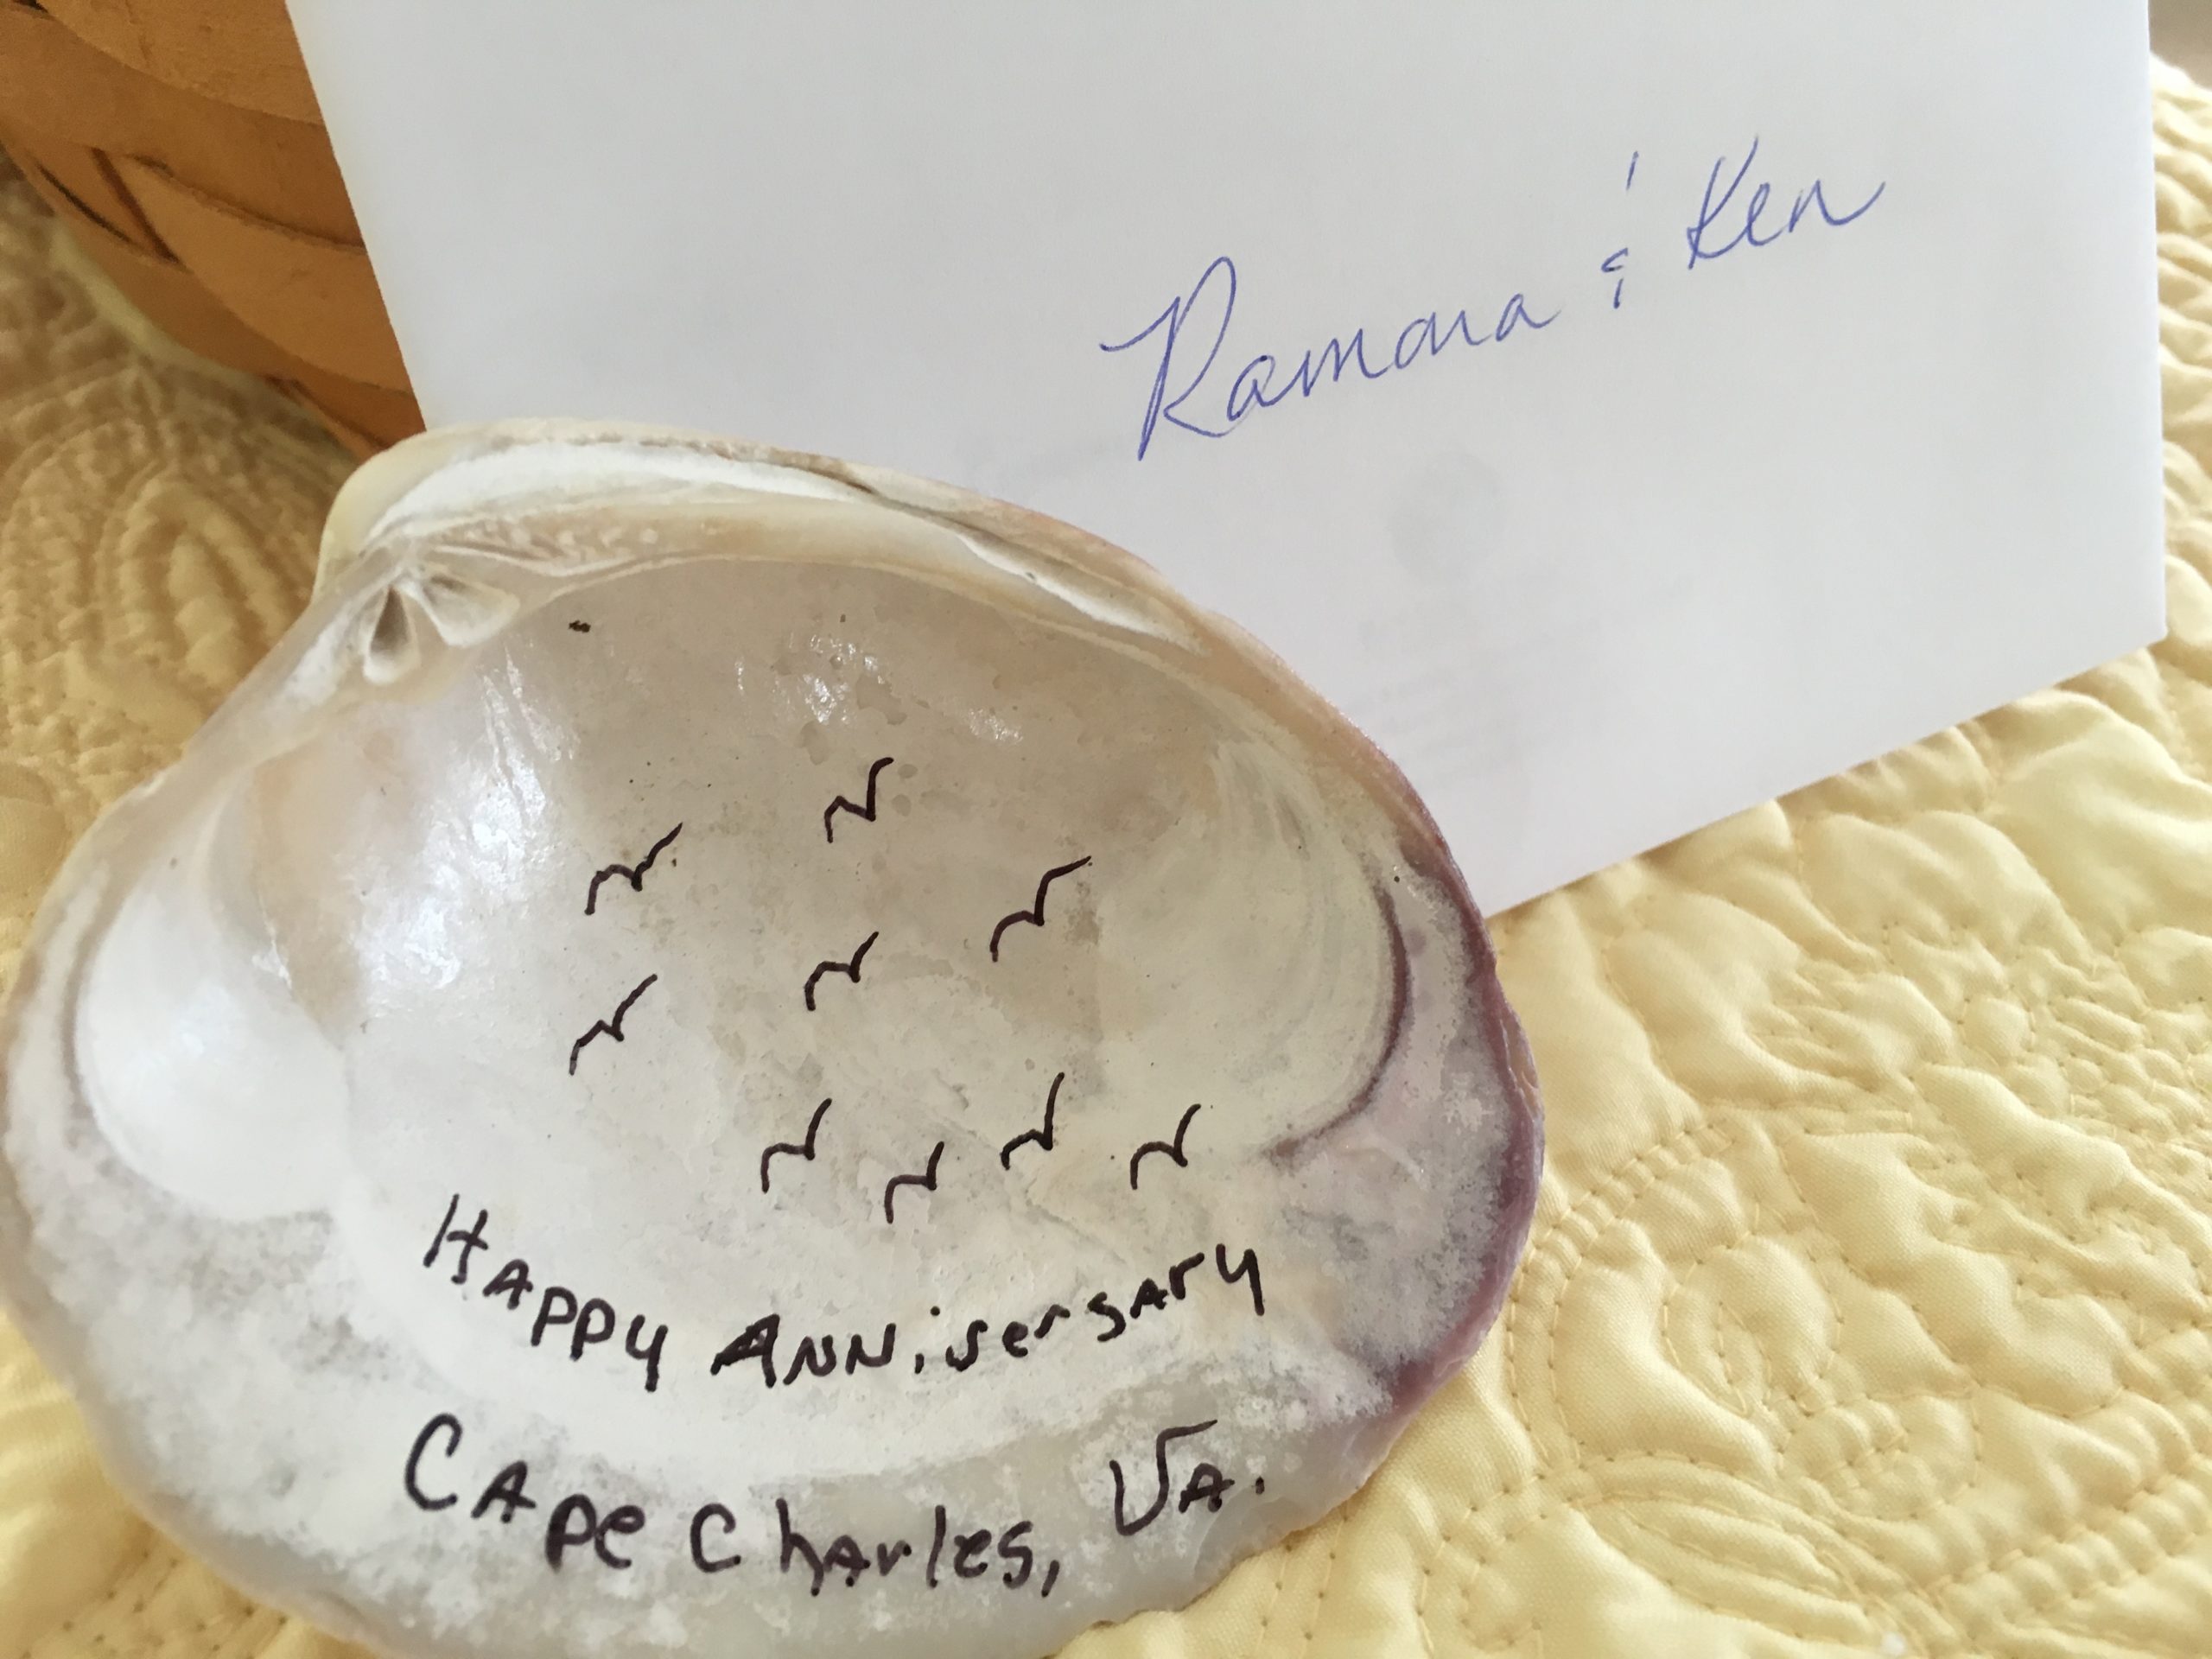 Ramona & Ken
Happy Anniversary
Cape Charles, VA.